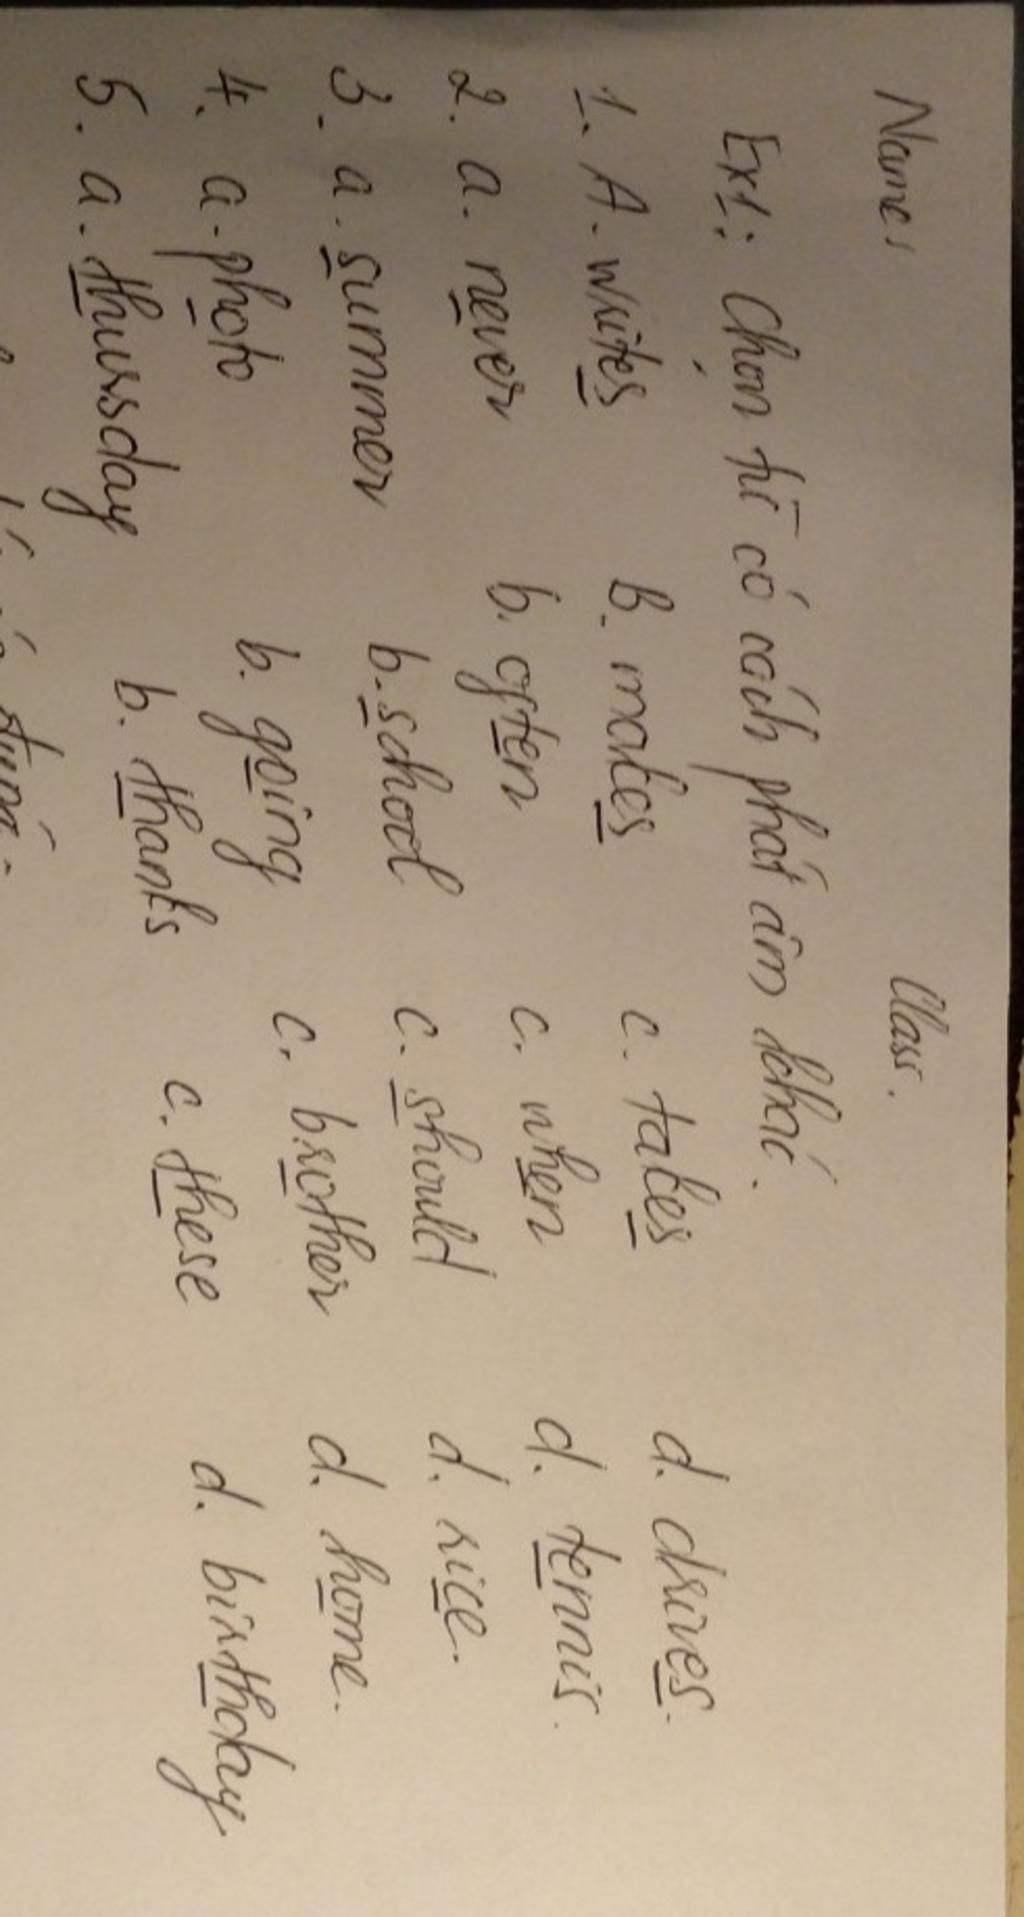 Name: Class.
Ex1: Chọn từ có cách phát âm khác.
1. A. writes B. makes c. takes d. drives.
2. a. never b. often c. when d. tennis.
3. a. summer b. school c. should d. rice.
4. a. photo b. going c. brother d. home.
5. a. thursday b. thanks c. these d. birthday